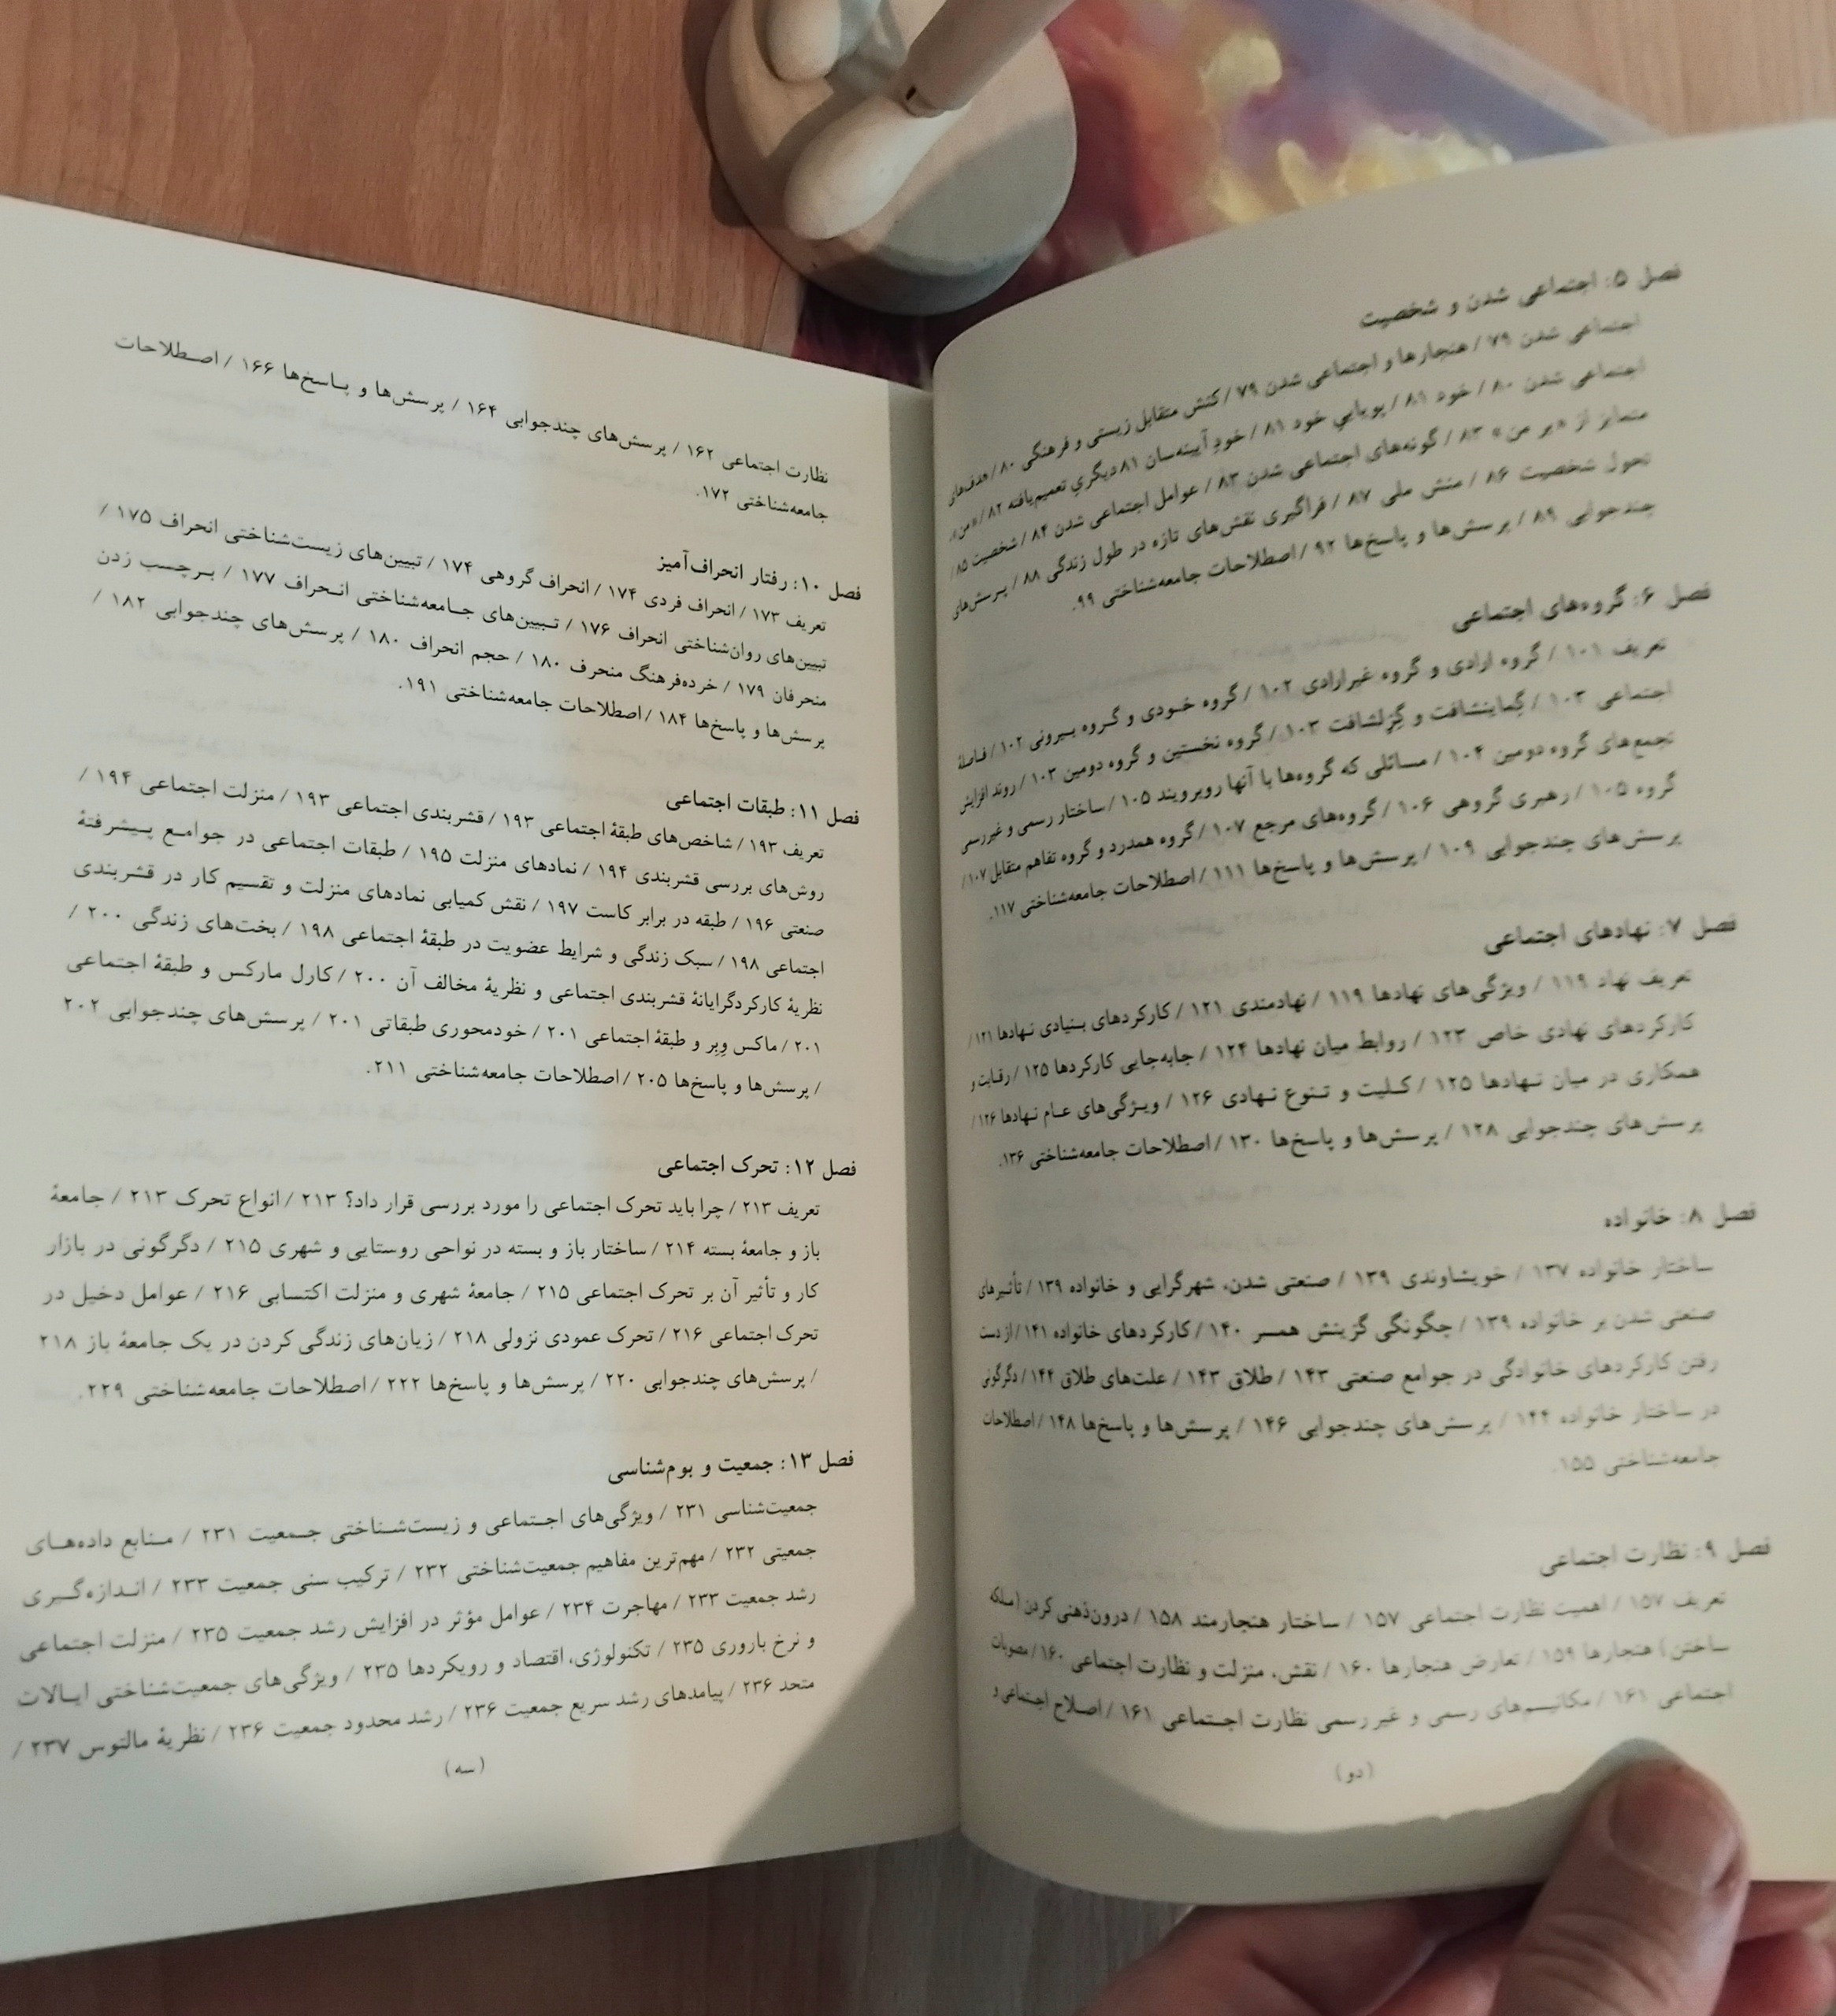 فصل ۵: اجتماعی شدن و شخصیت
اجتماعی شدن ۷۹ / هنجارها و اجتماعی شدن ۷۹ / کنش متقابل زیستی و فرهنگی ۸۰ / هدف‌های
اجتماعی شدن ۸۰ / خود ۸۱ / پویایی خود ۸۱ / خودِ آیینه‌سان ۸۱ دیگریِ تعمیم‌یافته ۸۲ / «من»،
متمایز از «بر من» ۸۳ / گونه‌های اجتماعی شدن ۸۳ / عوامل اجتماعی شدن ۸۴ / شخصیت ۸۵ /
تحول شخصیت ۸۶ / منش ملی ۸۷ / فراگیری نقش‌های تازه در طول زندگی ۸۸ / پرسش‌های
چندجوابی ۸۹ / پرسش‌ها و پاسخ‌ها ۹۲ / اصطلاحات جامعه‌شناختی ۹۹.
فصل ۶: گروه‌های اجتماعی
تعریف ۱۰۱ / گروه ارادی و گروه غیرارادی ۱۰۲ / گروه خودی و گروه بیرونی ۱۰۲ / فاصلهٔ
اجتماعی ۱۰۳ / گِماینشافت و گِزِلشافت ۱۰۳ / گروه نخستین و گروه دومین ۱۰۳ / روند افزایش
تجمع‌های گروه دومین ۱۰۴ / مسائلی که گروه‌ها با آنها روبرویند ۱۰۵ / ساختار رسمی و غیررسمی
گروه ۱۰۵ / رهبری گروهی ۱۰۶ / گروه‌های مرجع ۱۰۷ / گروه همدرد و گروه تفاهم متقابل ۱۰۷ /
پرسش‌های چندجوابی ۱۰۹ / پرسش‌ها و پاسخ‌ها ۱۱۱ / اصطلاحات جامعه‌شناختی ۱۱۷.
فصل ۷: نهادهای اجتماعی
تعریف نهاد ۱۱۹ / ویژگی‌های نهادها ۱۱۹ / نهادمندی ۱۲۱ / کارکردهای بنیادی نهادها ۱۲۱ /
کارکردهای نهادی خاص ۱۲۳ / روابط میان نهادها ۱۲۴ / جابه‌جایی کارکردها ۱۲۵ / رقابت و
همکاری در میان نهادها ۱۲۵ / کلیت و تنوع نهادی ۱۲۶ / ویژگی‌های عام نهادها ۱۲۶ /
پرسش‌های چندجوابی ۱۲۸ / پرسش‌ها و پاسخ‌ها ۱۳۰ / اصطلاحات جامعه‌شناختی ۱۳۶.
فصل ۸: خانواده
ساختار خانواده ۱۳۷ / خویشاوندی ۱۳۹ / صنعتی شدن، شهرگرایی و خانواده ۱۳۹ / تأثیرهای
صنعتی شدن بر خانواده ۱۳۹ / چگونگی گزینش همسر ۱۴۰ / کارکردهای خانواده ۱۴۱ / از دست
رفتن کارکردهای خانوادگی در جوامع صنعتی ۱۴۳ / طلاق ۱۴۳ / علت‌های طلاق ۱۴۴ / دگرگونی
در ساختار خانواده ۱۴۴ / پرسش‌های چندجوابی ۱۴۶ / پرسش‌ها و پاسخ‌ها ۱۴۸ / اصطلاحات
جامعه‌شناختی ۱۵۵.
فصل ۹: نظارت اجتماعی
تعریف ۱۵۷ / اهمیت نظارت اجتماعی ۱۵۷ / ساختار هنجارمند ۱۵۸ / درون‌ذهنی کردن (ملکه
ساختن) هنجارها ۱۵۹ / تعارض هنجارها ۱۶۰ / نقش، منزلت و نظارت اجتماعی ۱۶۰ / مصوبات
اجتماعی ۱۶۱ / مکانیسم‌های رسمی و غیررسمی نظارت اجتماعی ۱۶۱ / اصلاح اجتماعی و
(دو)
نظارت اجتماعی ۱۶۲ / پرسش‌های چندجوابی ۱۶۴ / پرسش‌ها و پاسخ‌ها ۱۶۶ / اصطلاحات
جامعه‌شناختی ۱۷۲.
فصل ۱۰: رفتار انحراف‌آمیز
تعریف ۱۷۳ / انحراف فردی ۱۷۴ / انحراف گروهی ۱۷۴ / تبیین‌های زیست‌شناختی انحراف ۱۷۵ /
تبیین‌های روان‌شناختی انحراف ۱۷۶ / تبیین‌های جامعه‌شناختی انحراف ۱۷۷ / برچسب زدن
منحرفان ۱۷۹ / خرده‌فرهنگ منحرف ۱۸۰ / حجم انحراف ۱۸۰ / پرسش‌های چندجوابی ۱۸۲ /
پرسش‌ها و پاسخ‌ها ۱۸۴ / اصطلاحات جامعه‌شناختی ۱۹۱.
فصل ۱۱: طبقات اجتماعی
تعریف ۱۹۳ / شاخص‌های طبقهٔ اجتماعی ۱۹۳ / قشربندی اجتماعی ۱۹۳ / منزلت اجتماعی ۱۹۴ /
روش‌های بررسی قشربندی ۱۹۴ / نمادهای منزلت ۱۹۵ / طبقات اجتماعی در جوامع پیشرفتهٔ
صنعتی ۱۹۶ / طبقه در برابر کاست ۱۹۷ / نقش کمیابی نمادهای منزلت و تقسیم کار در قشربندی
اجتماعی ۱۹۸ / سبک زندگی و شرایط عضویت در طبقهٔ اجتماعی ۱۹۸ / بخت‌های زندگی ۲۰۰ /
نظریهٔ کارکردگرایانهٔ قشربندی اجتماعی و نظریهٔ مخالف آن ۲۰۰ / کارل مارکس و طبقهٔ اجتماعی
۲۰۱ / ماکس وِبِر و طبقهٔ اجتماعی ۲۰۱ / خودمحوری طبقاتی ۲۰۱ / پرسش‌های چندجوابی ۲۰۲
/ پرسش‌ها و پاسخ‌ها ۲۰۵ / اصطلاحات جامعه‌شناختی ۲۱۱.
فصل ۱۲: تحرک اجتماعی
تعریف ۲۱۳ / چرا باید تحرک اجتماعی را مورد بررسی قرار داد؟ ۲۱۳ / انواع تحرک ۲۱۳ / جامعهٔ
باز و جامعهٔ بسته ۲۱۴ / ساختار باز و بسته در نواحی روستایی و شهری ۲۱۵ / دگرگونی در بازار
کار و تأثیر آن بر تحرک اجتماعی ۲۱۵ / جامعهٔ شهری و منزلت اکتسابی ۲۱۶ / عوامل دخیل در
تحرک اجتماعی ۲۱۶ / تحرک عمودی نزولی ۲۱۸ / زیان‌های زندگی کردن در یک جامعهٔ باز ۲۱۸
/ پرسش‌های چندجوابی ۲۲۰ / پرسش‌ها و پاسخ‌ها ۲۲۲ / اصطلاحات جامعه‌شناختی ۲۲۹.
فصل ۱۳: جمعیت و بوم‌شناسی
جمعیت‌شناسی ۲۳۱ / ویژگی‌های اجتماعی و زیست‌شناختی جمعیت ۲۳۱ / منابع داده‌های
جمعیتی ۲۳۲ / مهم‌ترین مفاهیم جمعیت‌شناختی ۲۳۲ / ترکیب سنی جمعیت ۲۳۳ / اندازه‌گیری
رشد جمعیت ۲۳۳ / مهاجرت ۲۳۴ / عوامل مؤثر در افزایش رشد جمعیت ۲۳۵ / منزلت اجتماعی
و نرخ باروری ۲۳۵ / تکنولوژی، اقتصاد و رویکردها ۲۳۵ / ویژگی‌های جمعیت‌شناختی ایالات
متحد ۲۳۶ / پیامدهای رشد سریع جمعیت ۲۳۶ / رشد محدود جمعیت ۲۳۶ / نظریهٔ مالتوس ۲۳۷ /
(سه)